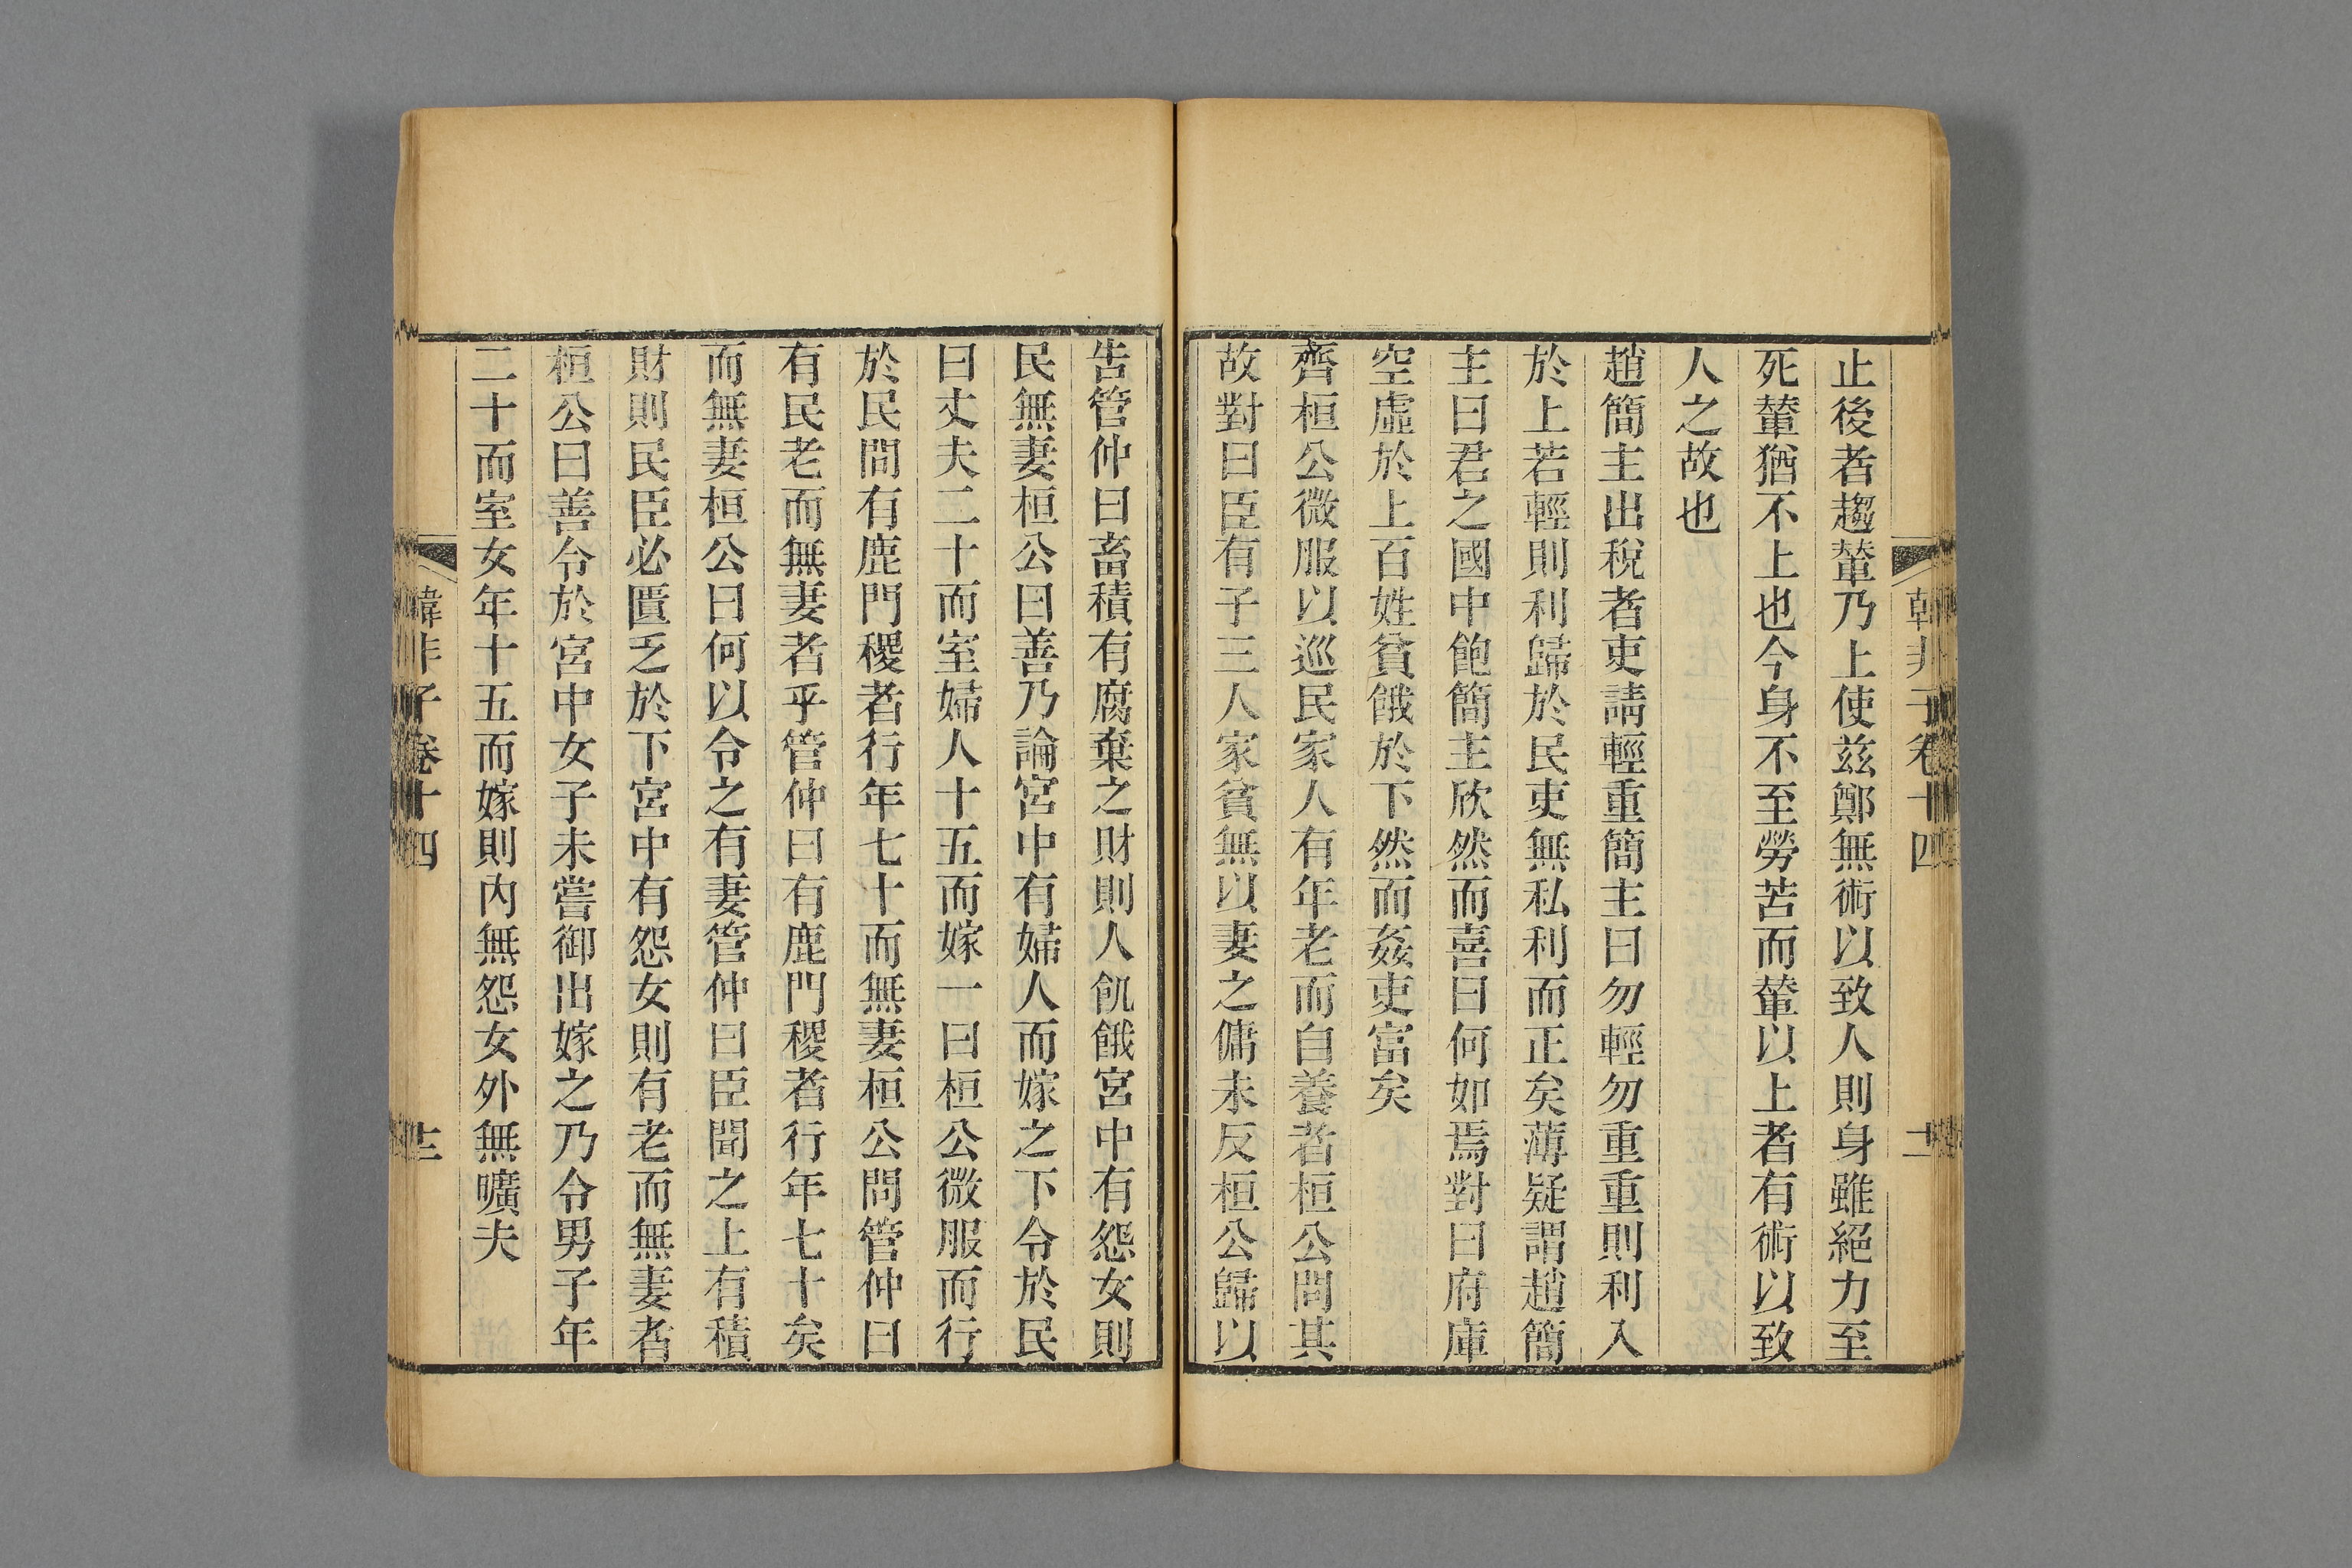 韓非子卷十四
止後者趨輦乃上使茲鄭無術以致人則身雖絕力至
死輦猶不上也今身不至勞苦而輦以上者有術以致
人之故也
趙簡主出稅者吏請輕重簡主曰勿輕勿重重則利入
於上若輕則利歸於民吏無私利而正矣薄疑謂趙簡
主曰君之國中飽簡主欣然而喜曰何如焉對曰府庫
空虛於上百姓貧餓於下然而姦吏富矣
齊桓公微服以巡民家人有年老而自養者桓公問其
故對曰臣有子三人家貧無以妻之傭未反桓公歸以
告管仲曰畜積有腐棄之財則人飢餓宮中有怨女則
民無妻桓公曰善乃論宮中有婦人而嫁之下令於民
曰丈夫二十而室婦人十五而嫁一曰桓公微服而行
於民間有鹿門稷者行年七十而無妻桓公問管仲曰
有民老而無妻者乎管仲曰有鹿門稷者行年七十矣
而無妻桓公曰何以令之有妻管仲曰臣聞之上有積
財則民臣必匱乏於下宮中有怨女則有老而無妻者
桓公曰善令於宮中女子未嘗御出嫁之乃令男子年
二十而室女年十五而嫁則內無怨女外無曠夫
韓非子卷十四